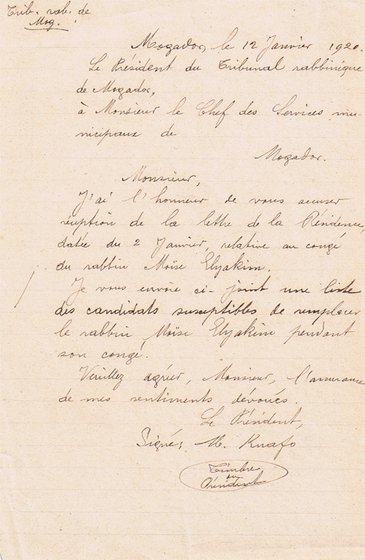 Trib. rab. de
Mog.
Mogador, le 12 Janvier 1920.
Le Président du Tribunal rabbinique
de Mogador,
à Monsieur le Chef des Services mu-
nicipaux de
Mogador.
Monsieur,
J'ai l'honneur de vous accuser
réception de la lettre de la Résidence,
datée du 2 Janvier, relative au congé
du rabbin Moïse Elyakim.
Je vous envoie ci-joint une liste
des candidats susceptibles de remplacer
le rabbin Moïse Elyakim pendant
son congé.
Veuillez agréer, Monsieur, l'assurance
de mes sentiments dévoués.
Le Président,
Signé: M. Knafo
Timbre
du
Président